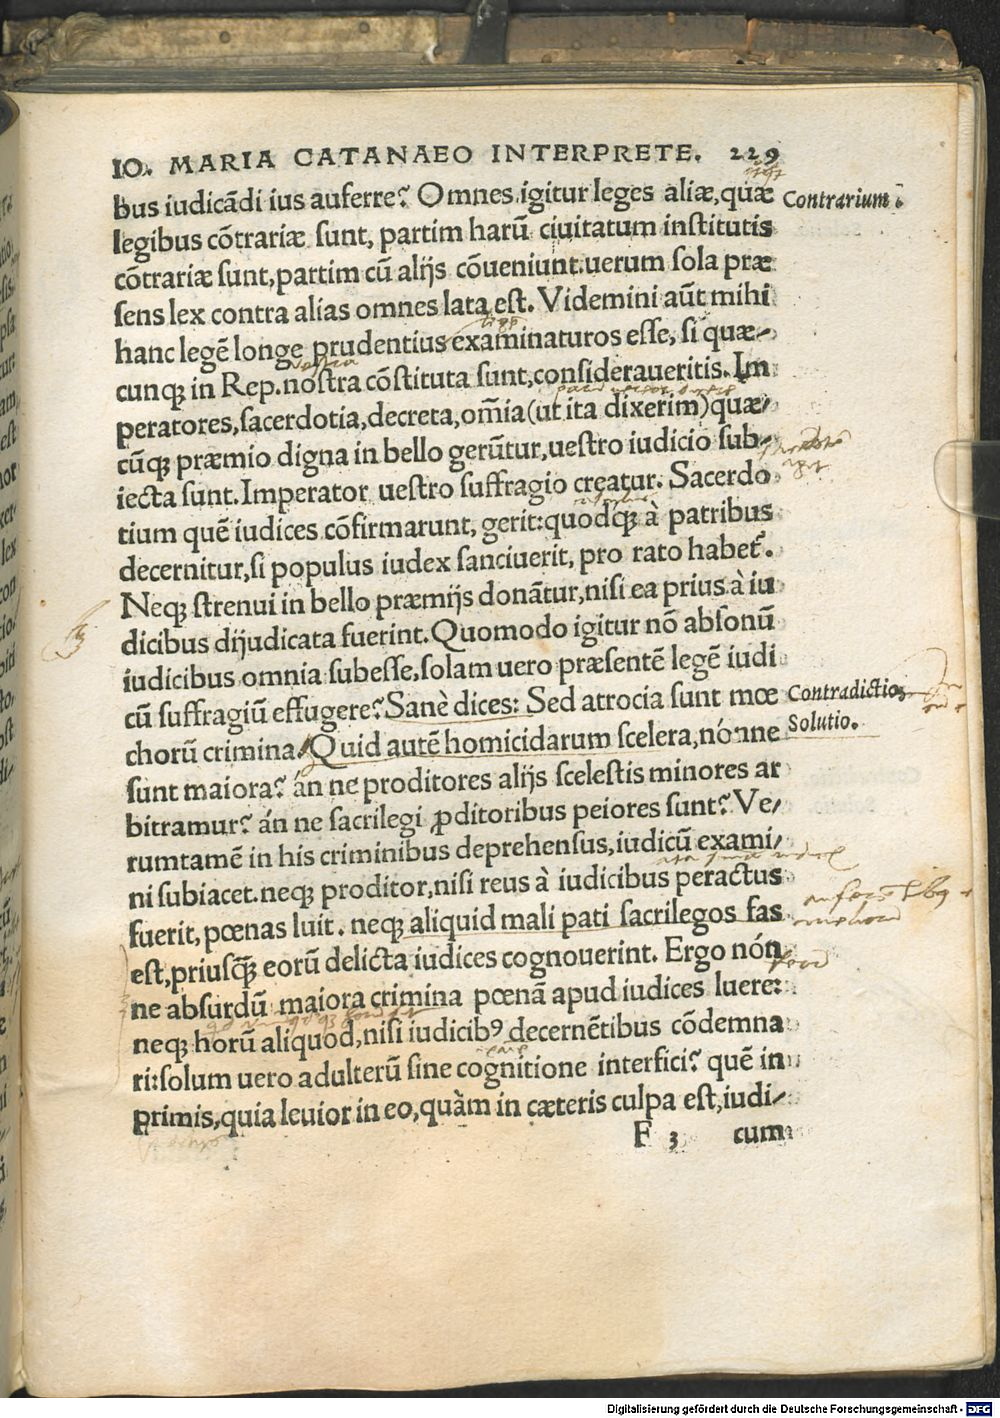 IO. MARIA CATANAEO INTERPRETE. 229
bus iudicãdi ius auferre? Omnes igitur leges aliæ, quæ
Contrarium
legibus cõtrariæ sunt, partim harũ ciuitatum institutis
cõtrariæ sunt, partim cũ alijs cõueniunt. uerum sola præ
sens lex contra alias omnes lata est. Videmini aũt mihi
hanc legẽ longe prudentius examinaturos esse, si quæ-
cunq; in Rep. nostra cõstituta sunt, consideraueritis. Im
peratores, sacerdotia, decreta, om̃ia (ut ita dixerim) quæ-
cũq; præmio digna in bello gerũtur, uestro iudicio sub-
iecta sunt. Imperator uestro suffragio creatur. Sacerdo
tium quẽ iudices cõfirmarunt, gerit: quodq; à patribus
decernitur, si populus iudex sanciuerit, pro rato habet̃.
Neq; strenui in bello præmijs donãtur, nisi ea prius à iu
dicibus dijudicata fuerint. Quomodo igitur nõ absonũ
iudicibus omnia subesse, solam uero præsentẽ legẽ iudi
cũ suffragiũ effugere? Sanè dices: Sed atrocia sunt mœ
Contradictio
chorũ crimina. Quid autẽ homicidarum scelera, nónne
Solutio.
sunt maiora? án ne proditores alijs scelestis minores ar
bitramur? án ne sacrilegi ꝓditoribus peiores sunt? Ve-
rumtamẽ in his criminibus deprehensus, iudicũ exami-
ni subiacet. neq; proditor, nisi reus à iudicibus peractus
fuerit, pœnas luit. neq; aliquid mali pati sacrilegos fas
est, priusq̃; eorũ delicta iudices cognouerint. Ergo nón
ne absurdũ maiora crimina pœnã apud iudices luere:
neq; horũ aliquod, nisi iudicibꝰ decernẽtibus cõdemna
ri: solum uero adulterũ sine cognitione interfici? quẽ in
primis, quia leuior in eo, quàm in cæteris culpa est, iudi-
F 3 cum
Digitalisierung gefördert durch die Deutsche Forschungsgemeinschaft - DFG